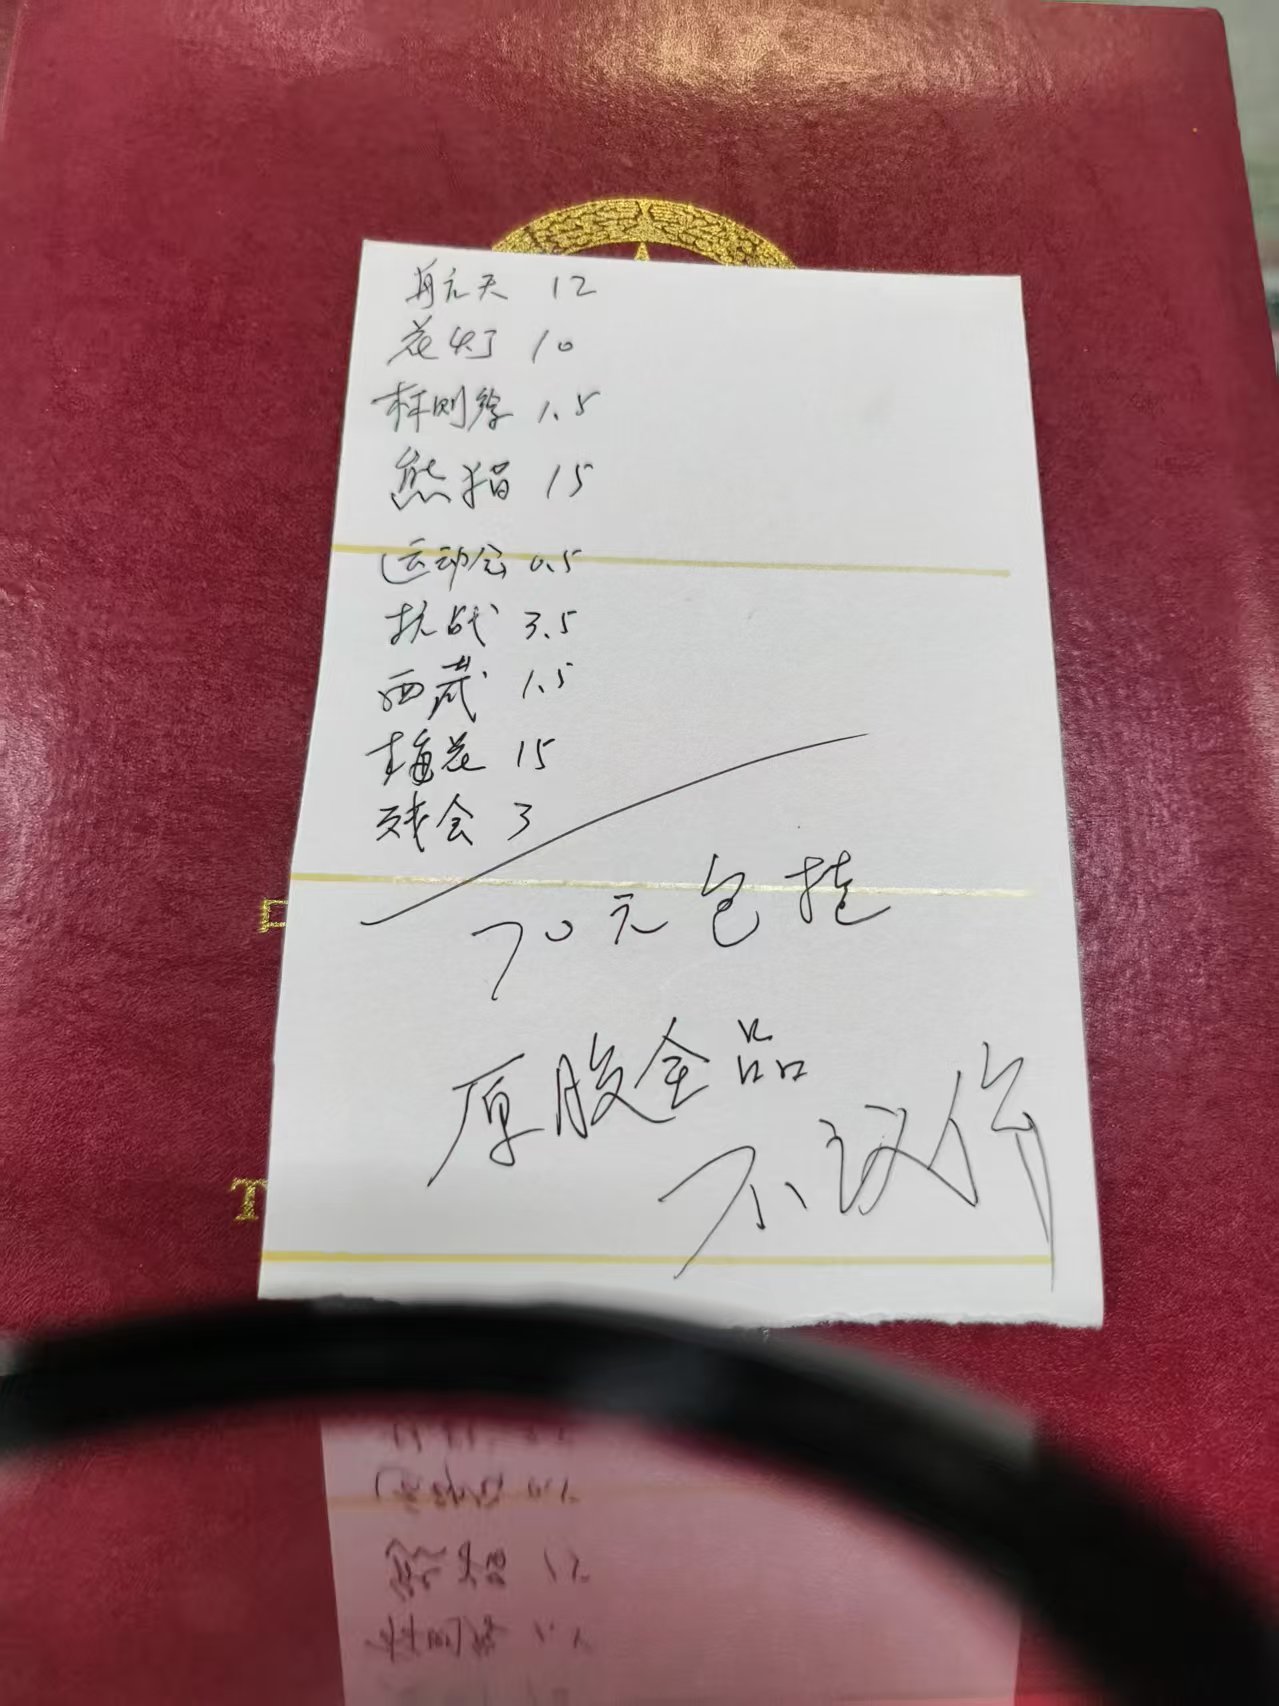 航天 12
花灯 10
林则徐 1.5
熊猫 15
运动会 0.5
抗战 3.5
西藏 1.5
梅花 15
残会 3
70元包挂
原胶全品
不议价
T